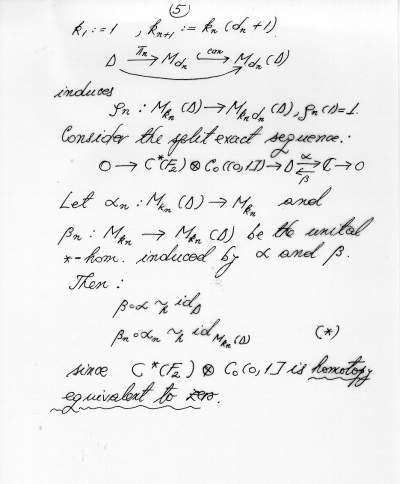 (5)
k₁ := 1 , kₙ₊₁ := kₙ (dₙ+1).
D —πₙ→ M_dₙ ↪can→ M_dₙ (D)
induces
ρₙ : M_kₙ (D) → M_kₙdₙ (D), ρₙ(1)=1.
Consider the split exact sequence:
0 → C*(F₂) ⊗ C₀((0,1]) → D ⇄ ℂ → 0
α
β
Let αₙ : M_kₙ (D) → M_kₙ and
βₙ : M_kₙ → M_kₙ (D) be the unital
*-hom. induced by α and β.
Then :
β∘α ~ₕ id_D
βₙ∘αₙ ~ₕ id_M_kₙ(D) (*)
since C*(F₂) ⊗ C₀(0,1] is homotopy
equivalent to zero.